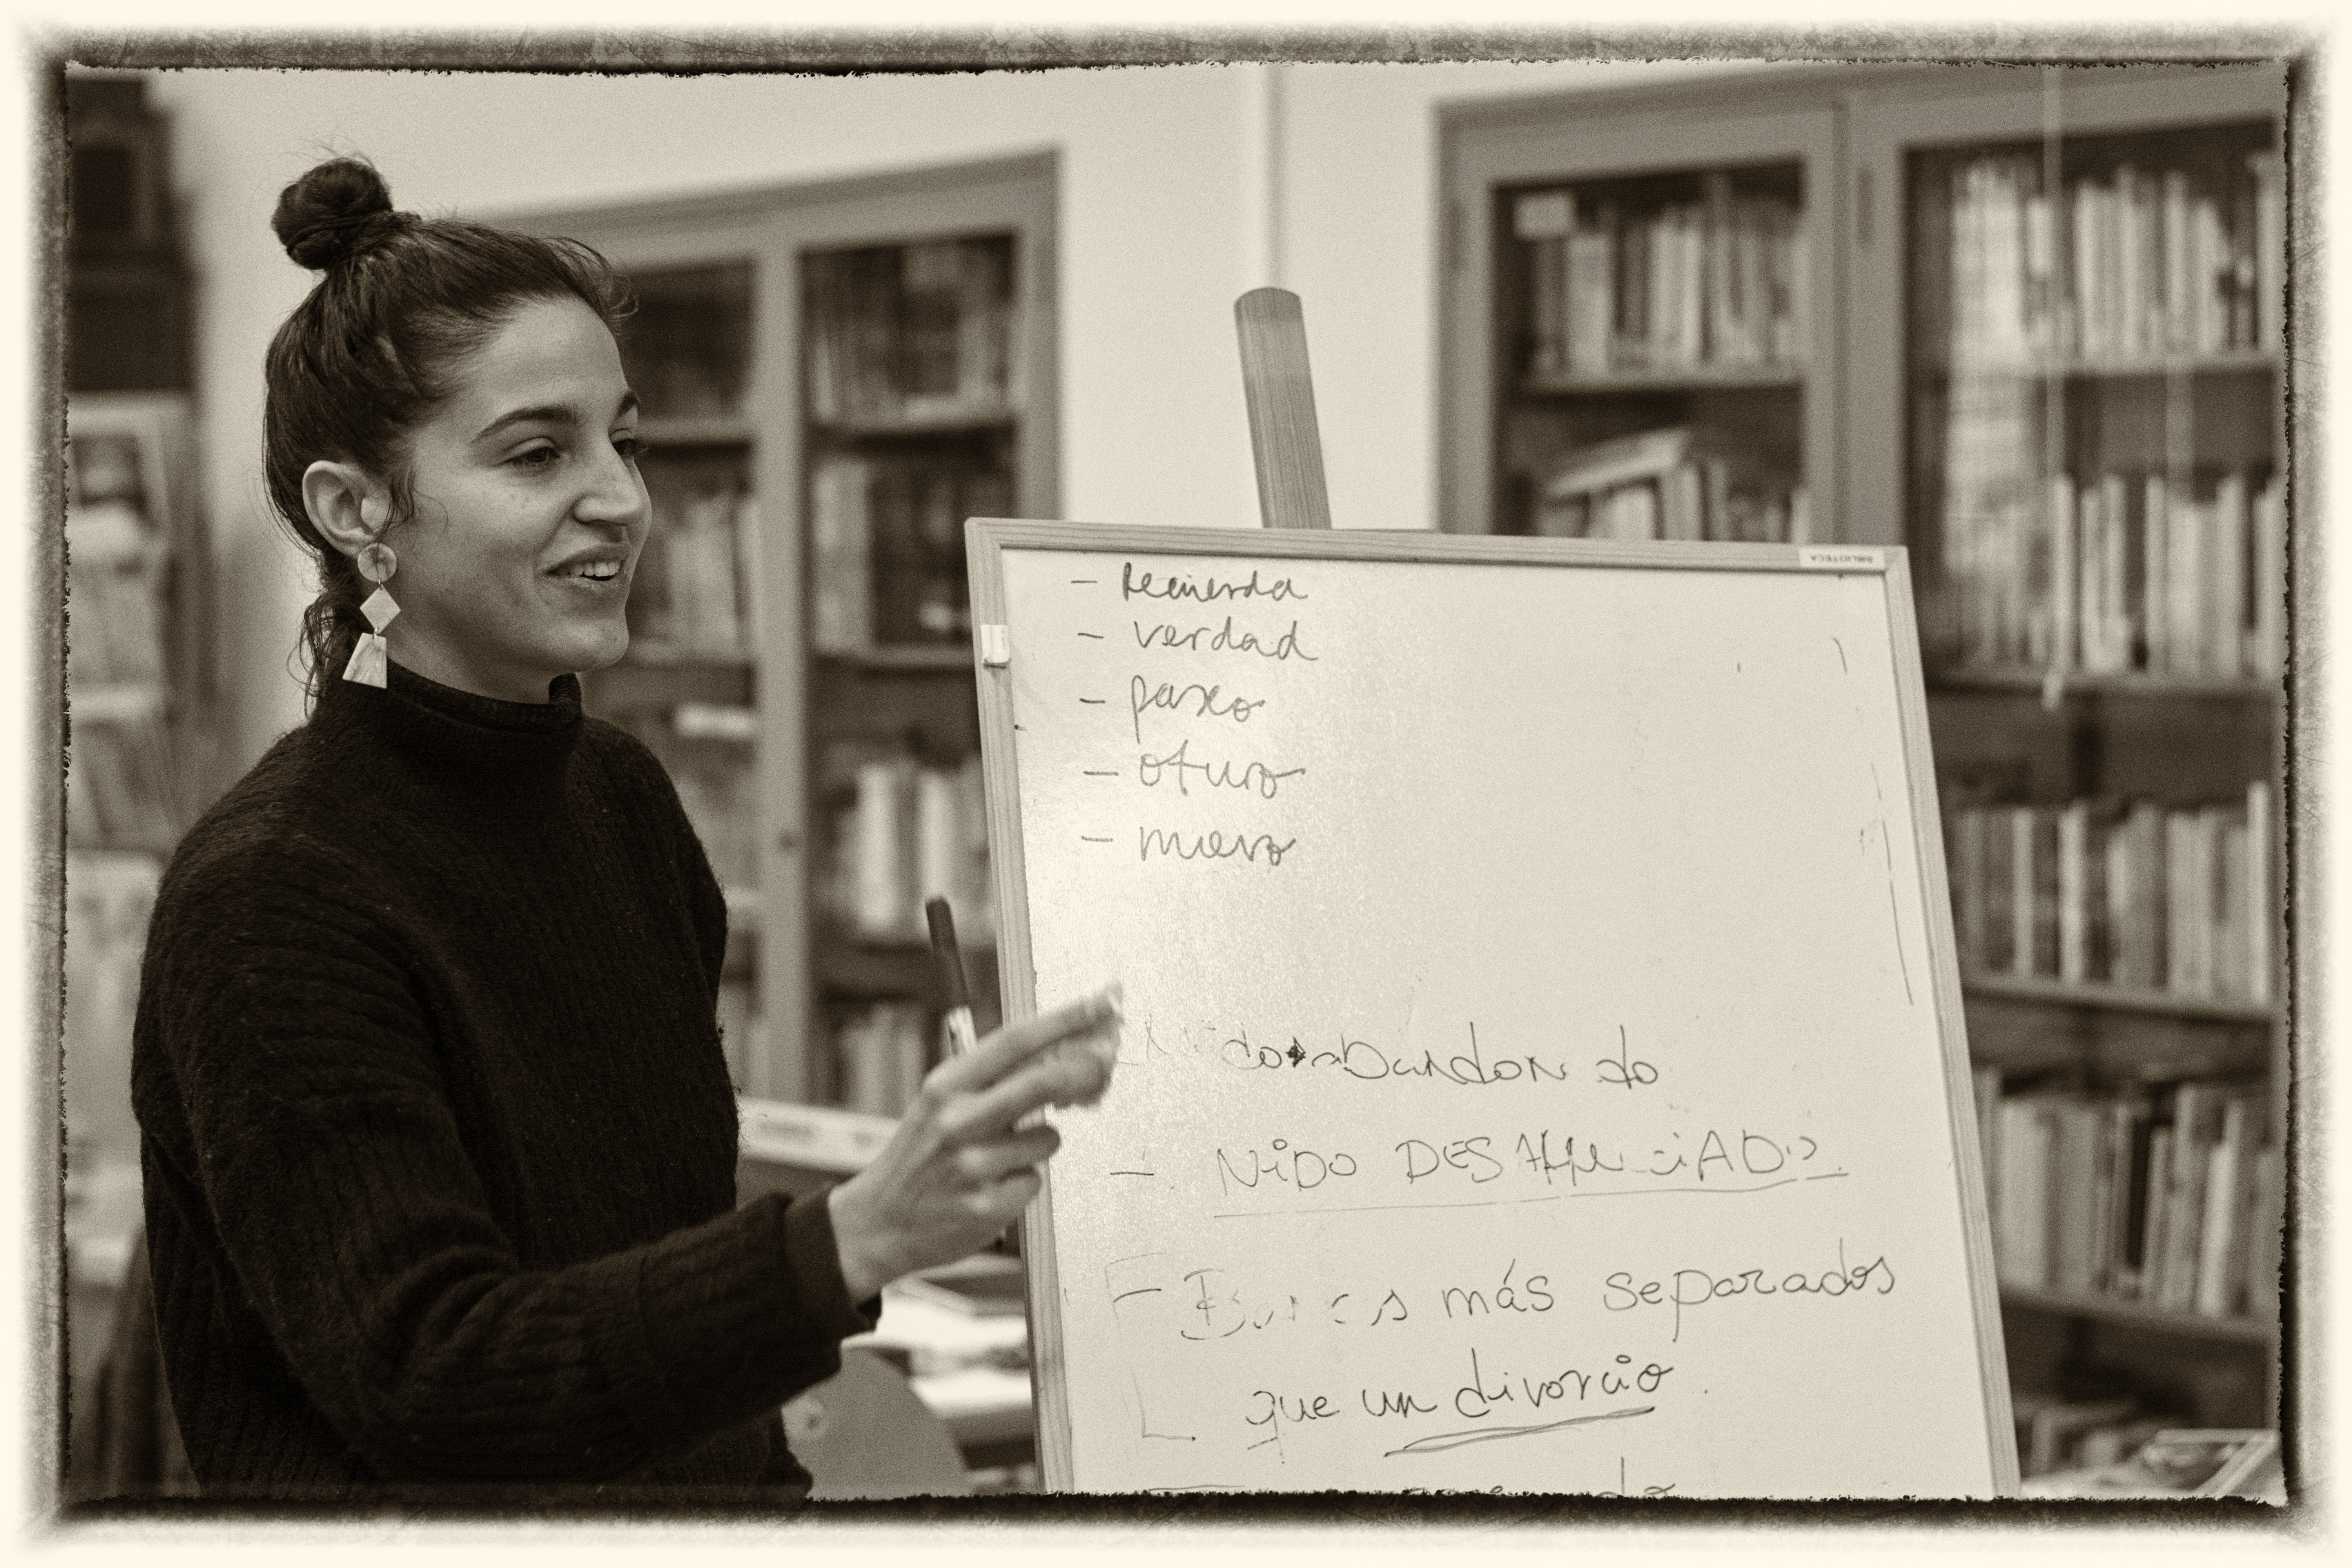 BIBLIOTECA
- Recuerda
- verdad
- paseo
- oturo
- muero
abandonado
- NiDO
más separados
que un divorcio.